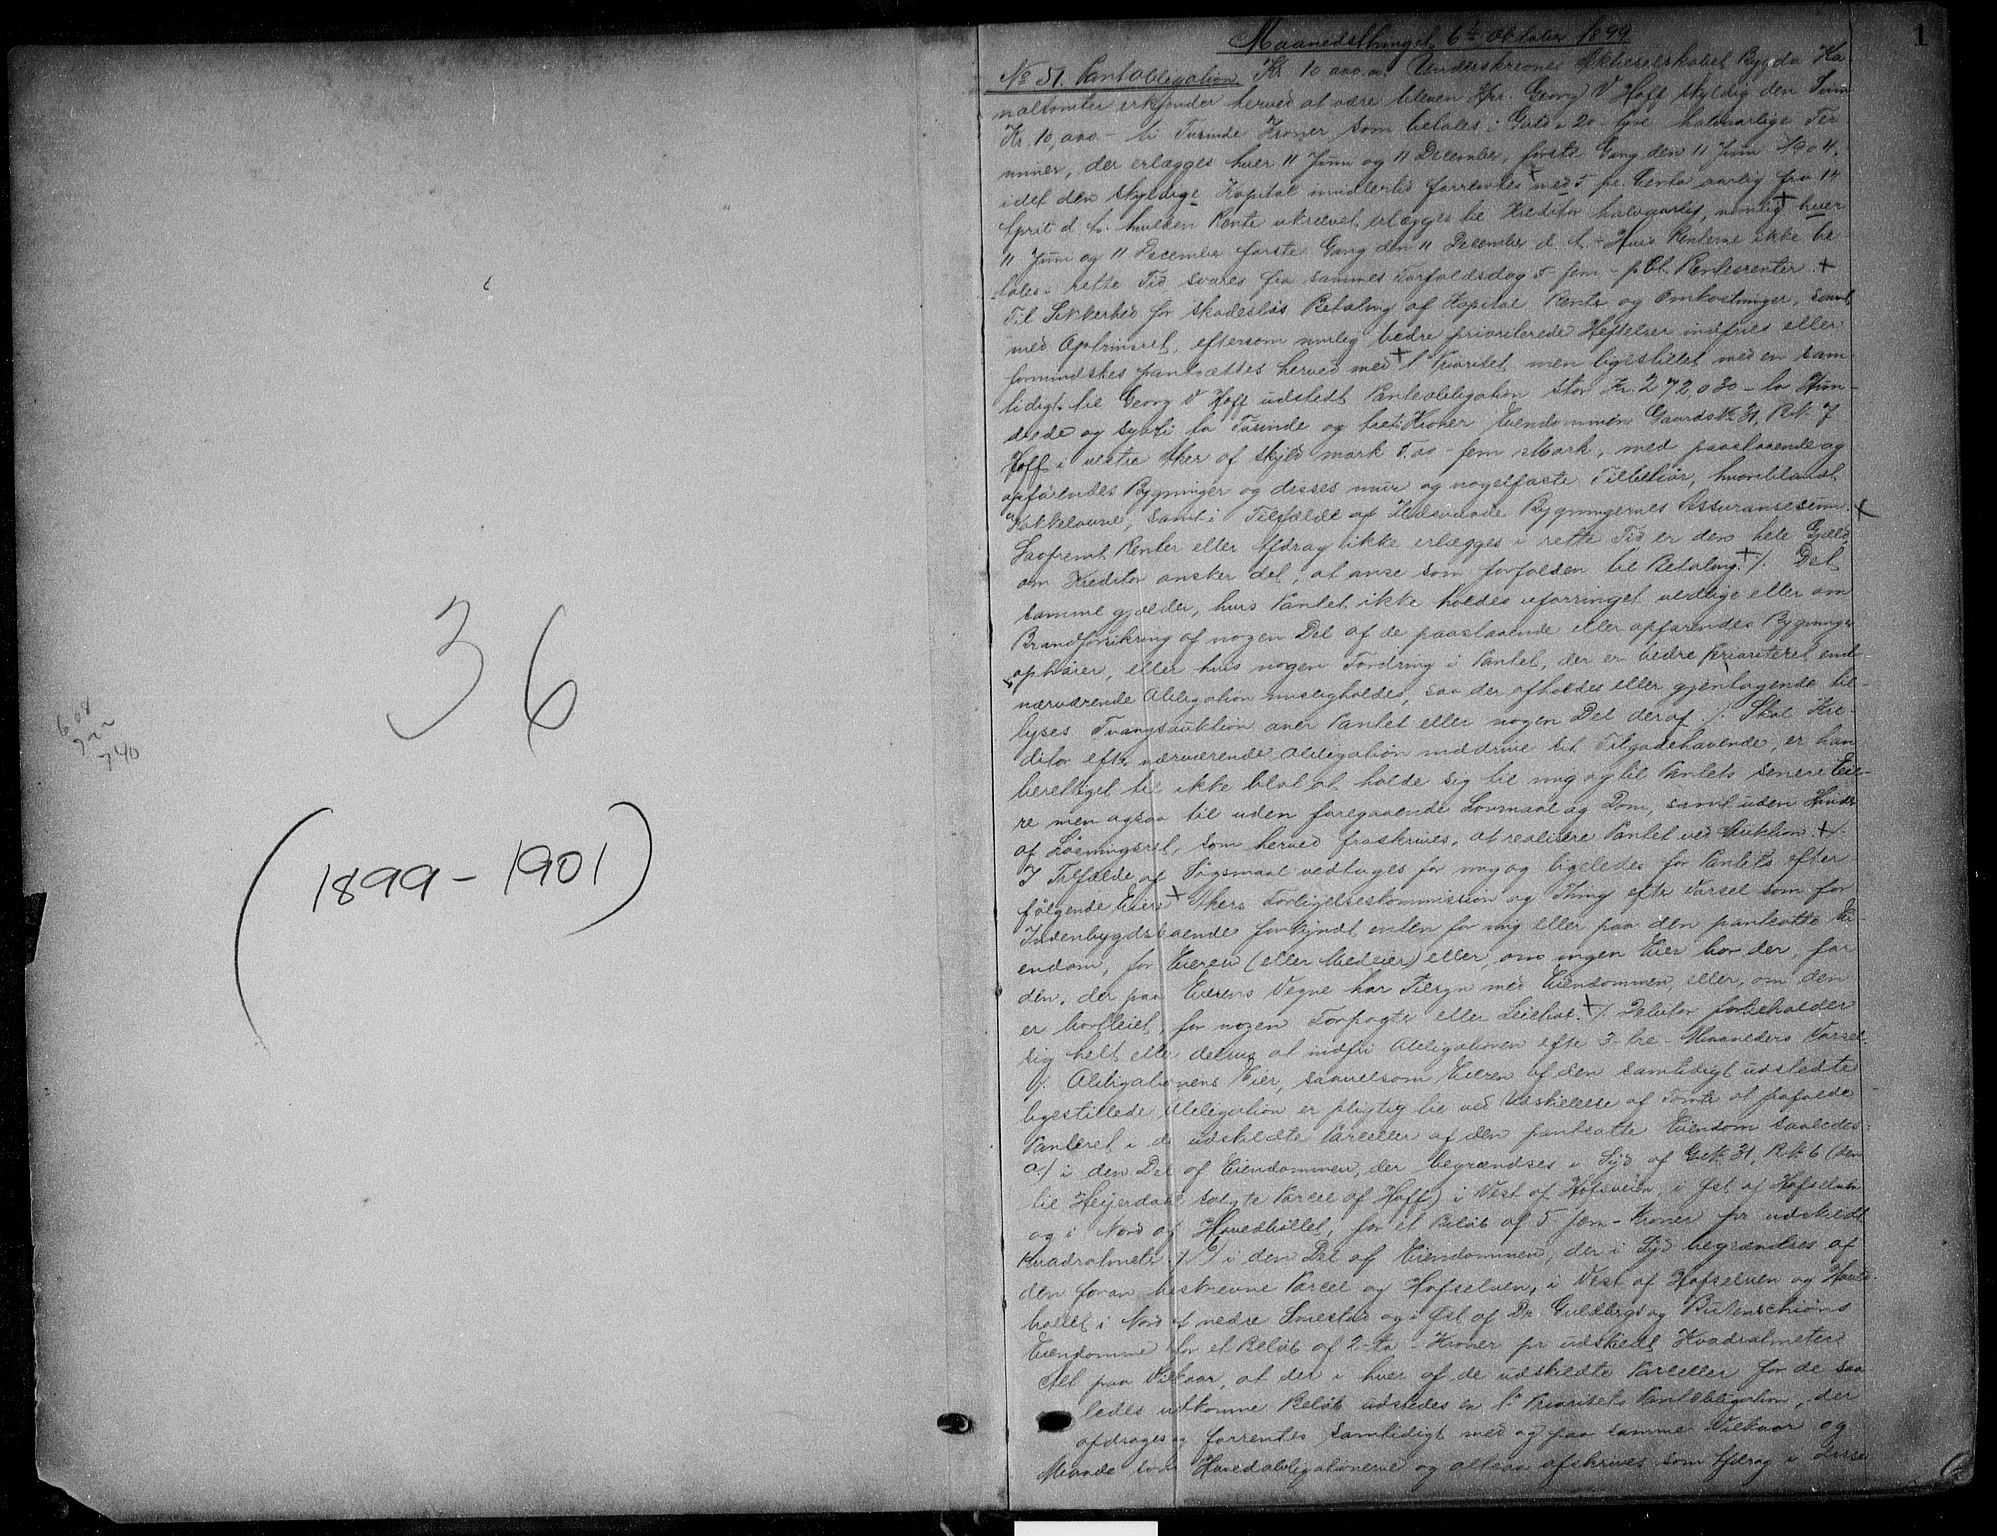 36
608
7
740
(1899 - 1901)
1
Maanedsthinget 6te Oktober 1899
No 51. Pantobligation. Kr. 10 000.00. Underskrevne Aktieselskabet Bygdø Ka-
naltomter erkjender herved at være bleven Hr. Georg V Hoff skyldig den Sum
Kr. 10,000 - ti Tusinde Kroner som betales i 20 - tyve halvaarlige Ter
miner, der erlægges hver 11 Juni og 11 December, første Gang den 11 Juni 1904,
idet den skyldige Kapital imidlertid forrentes med 5 pr. Cento aarlig fra 14
April d. A. hvilken Rente ukrævet erlægges til Kreditor halvaarlig, nemlig hver
11 Juni og 11 December første Gang den 11 December d. A. - Hvis Renterne ikke be-
tales i rette Tid svares fra sammes Forfaldsdag 5 - fem - pCt. Rentesrenter. +
Til Sikkerhed for skadesløs Betaling af Kapital Renter og Omkostninger, samt
med Oprykningsret, eftersom bedre prioriterede Heftelser indfries eller
formindskes pantsættes herved med 1ste Prioritet men ligestillet med en sam-
tidigt til Georg V Hoff udstedt Panteobligation stor Kr. 272,030 - to Hun-
drede og sytti to Tusinde og tretti Kroner Eiendommen Gaards No 31, Bk. 7
Hoff i vestre Aker af skyld mark 5.00 - fem Mark, med paastaaende og
opførendes Bygninger og disses mur og nagelfaste Tilbehør, hvoriblandt
Kakkelovne, samt i Tilfælde af Ildsvaade Bygningernes Assurancesum. +
Saafremt Renter eller Afdrag ikke erlægges i rette Tid er den hele Gjæld,
om Kreditor ønsker det, at anse som forfalden til Betaling. /. Det
samme gjælder, hvis Pantet ikke holdes uforringet vedlige eller om
Brandforsikring af nogen Del af de paastaaende eller opførendes Bygninger
ophører, eller hvis nogen Fordring i Pantet, der er bedre Prioriteret end
nærværende Obligation misligholdes, saa der afholdes eller gjentagende til-
lyses Tvangsauktion over Pantet eller nogen Del deraf. /. Skal Kre-
ditor efter nærværende Obligation inddrive sit Tilgodehavende, er han
berettiget til ikke blot at holde sig til mig og til Pantets senere Eie-
re men ogsaa til uden foregaaende Lovmaal og Dom, samt uden Hinder
af Løsningsret, som herved fraskrives, at realisere Pantet ved Auktion. + /.
I Tilfælde af Søgsmaal vedtages for mig og ligeledes for Pantets efter-
følgende Eiere + Akers Forligelseskommission og Thing efter Varsel som for
Indenbygdsboende forkyndt enten for mig eller paa den pantsatte Ei-
endom, for Eieren (eller Medeier) eller, om ingen Eier bor der, for
den, der paa Eierens Vegne har Tilsyn med Eiendommen, eller, om den
er bortleiet, for nogen Forpagter eller Leiebor. + /. Debitor forbeholder
sig helt eller delvis at indfri Obligationen efter 3 - tre - Maaneders Varsel.
/. Obligationens Eier, saavelsom Eieren af den samtidigt udstedte
ligestillede Obligation er pligtig til ved Udskillelse af Tomter at frafalde
Panteret i de udskildte Parceller af den pantsatte Eiendom saaledes:
a/ i den Del af Eiendommen, der begrændses i Syd af G.No 31, B.k. 6 (den
til Heijerdahl solgte Parcel af Hoff) i Vest af Hofsveien, i Øst af Hofselven
og i Nord af Hovedbøllet, for et Beløb af 5 fem - Kroner pr udskildt
Kvadratmeter. /. b/ i den Del af Eiendommen, der i Syd begrændses af
den foran beskrevne Parcel og Hofselven, i Vest af Hofselven og Hoved-
bøllet i Nord af nedre Smestad og i Øst af Dr. Guldbergs og Butenschiøns
Eiendomme for et Beløb af 2 - to - Kroner pr udskildt Kvadratmeter.
Alt paa Vilkaar, at der i hver af de udskildte Parceller for de saa-
ledes udkomne Beløb udstedes en 1ste Prioritets Pantobligation, der
afdrages og forrentes samtidigt med og paa samme Vilkaar og
Maade som Hovedobligationerne og altsaa afskrives som Afdrag i disse